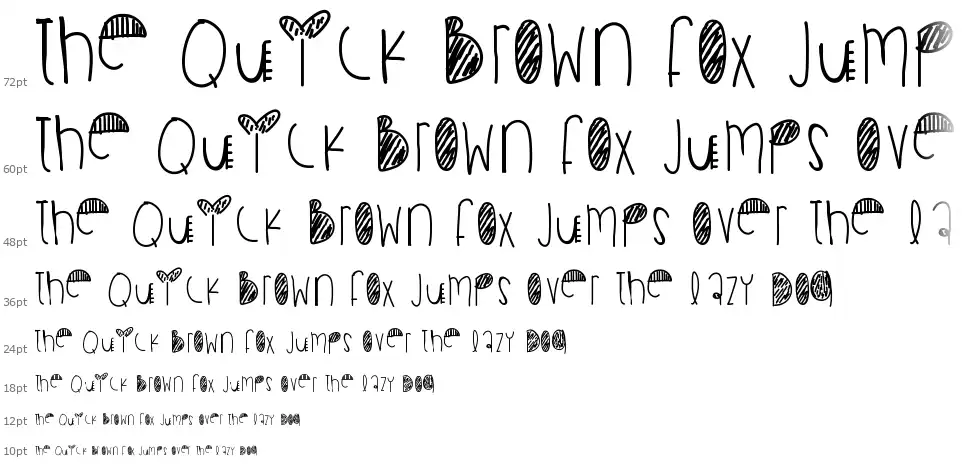 72pt The Quick Brown Fox Jump
60pt The Quick Brown Fox Jumps Ove
48pt The Quick Brown Fox Jumps Over The la
36pt The Quick Brown Fox Jumps Over The lazy Dog
24pt The Quick Brown Fox Jumps Over The lazy Dog
18pt The Quick Brown Fox Jumps Over The lazy Dog
12pt The Quick Brown Fox Jumps Over The lazy Dog
10pt The Quick Brown Fox Jumps Over The lazy Dog